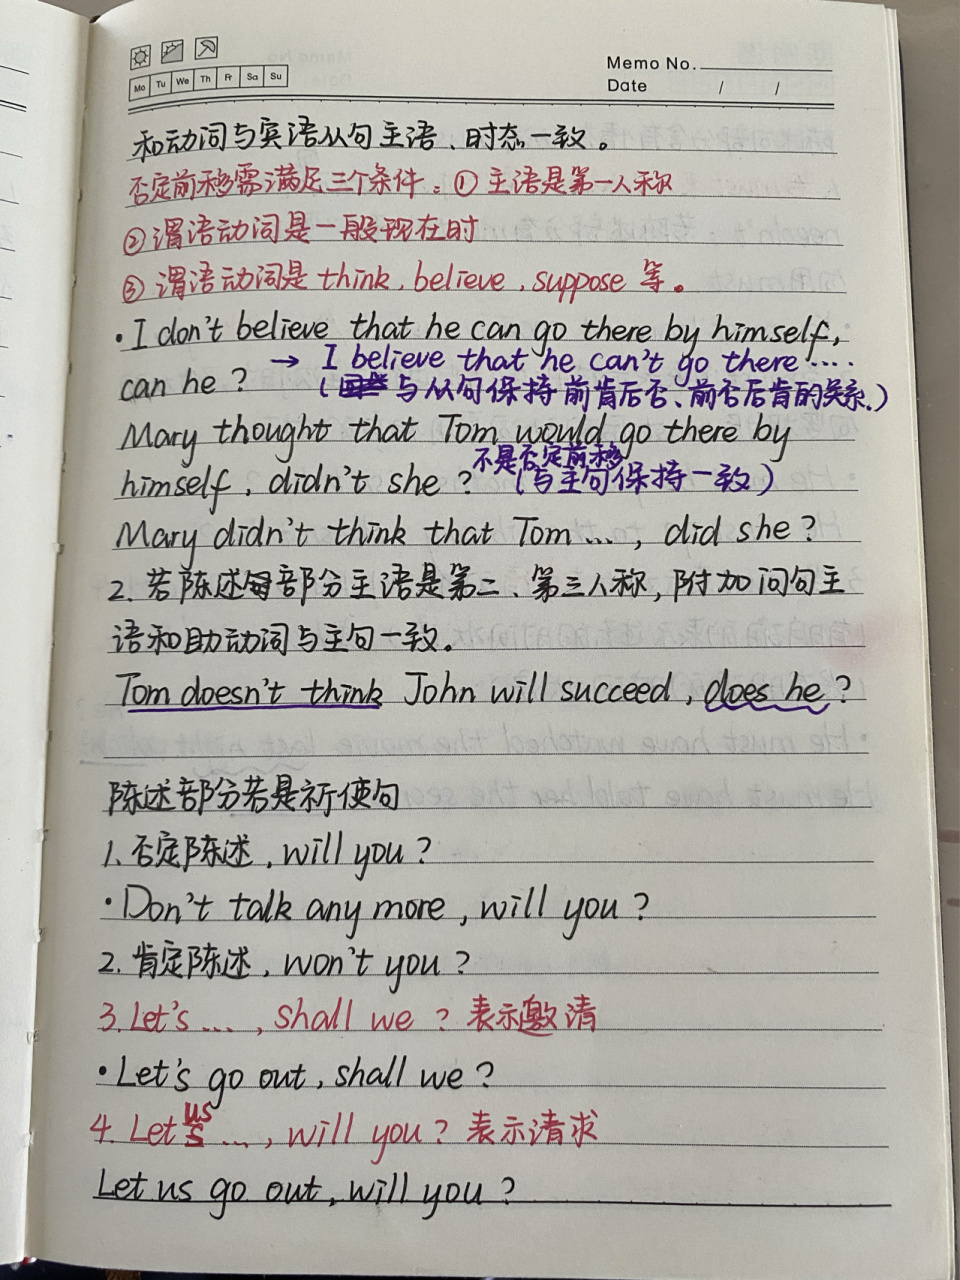 Memo No.
Mo Tu We Th Fr Sa Su
Date / /
和动词与宾语从句主语、时态一致。
否定前移需满足三个条件：① 主语是第一人称
② 谓语动词是一般现在时
③ 谓语动词是 think, believe, suppose 等。
•I don't believe that he can go there by himself,
→ I believe that he can't go there ....
can he ?
(与从句保持前肯后否、前否后肯的关系.)
Mary thought that Tom would go there by
不是否定前移
himself, didn't she ? (与主句保持一致)
Mary didn't think that Tom ..., did she ?
2. 若陈述部分主语是第二、第三人称, 附加问句主
语和助动词与主句一致。
Tom doesn't think John will succeed, does he ?
陈述部分若是祈使句
1. 否定陈述, will you ?
•Don't talk any more, will you ?
2. 肯定陈述, won't you ?
3. Let's ..., shall we ? 表示邀请
•Let's go out, shall we ?
4. Let us ..., will you ? 表示请求
Let us go out, will you ?